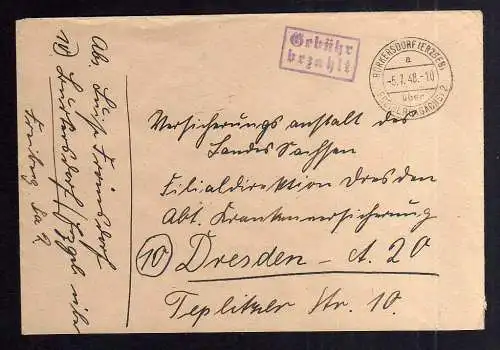 Gebühr
bezahlt
BURKERSDORF (ERZGEB)
a
-5.7.48.-10
über
FREIBERG (SACHS) 2
Versicherungsanstalt des
Landes Sachsen
Filialdirektion Dresden
Abt. Krankenversicherung
(10) Dresden - A. 20
Teplitzer Str. 10.
Abs.
10) Burkersdorf / Erzgeb. über
Freiberg Sa 2